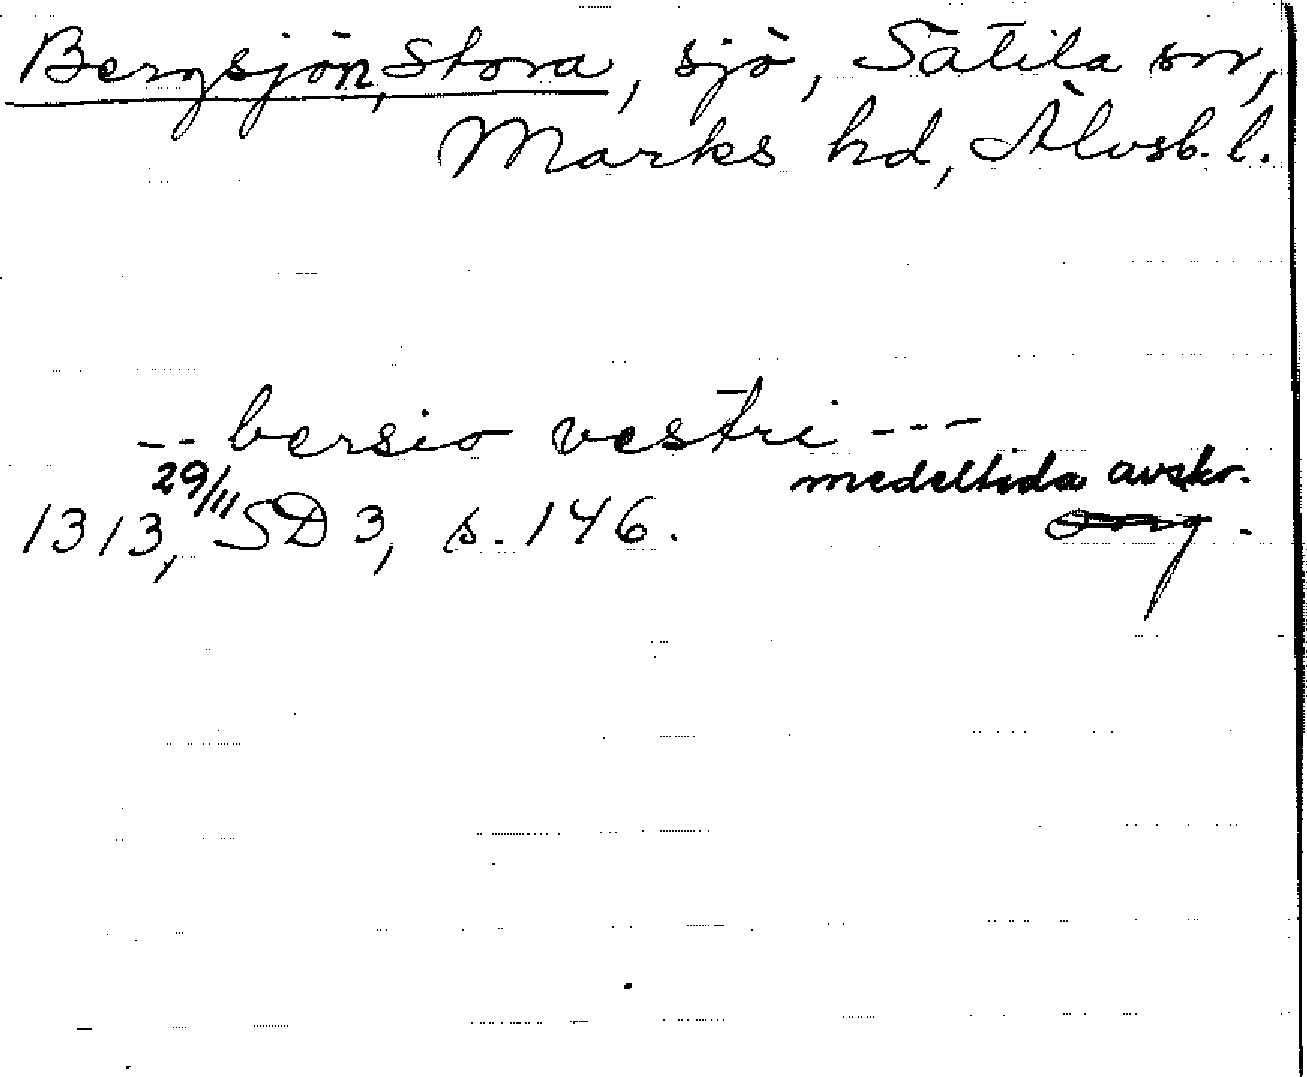 Bergsjön, Stora, sjö, Sätila sn,
Marks hd, Älvsb. l.
-- bersio vestri ---
medeltida avskr.
1313, 29/11 SD 3, s. 146.